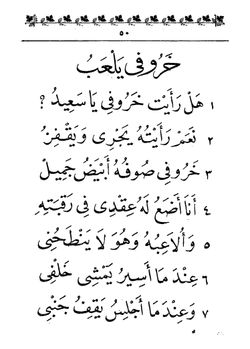 ٥٠
خَرُوفِى يَلْعَبُ
١ هَلْ رَأَيْتَ خَرُوفِى يَا سَعِيدُ ؟
٢ نَعَمْ رَأَيْتُهُ يَجْرِى وَيَقْفِزُ
٣ خَرُوفِى صُوفُهُ أَبْيَضُ جَمِيلٌ
٤ أَنَا أَضَعُ لَهُ عِقْدِى فِى رَقَبَتِهِ
٥ وَأُلَاعِبُهُ وَهُوَ لَا يَنْطَحُنِى
٦ عِنْدَمَا أَسِيرُ يَمْشِى خَلْفِى
٧ وَعِنْدَمَا أَجْلِسُ يَقِفُ جَنْبِى